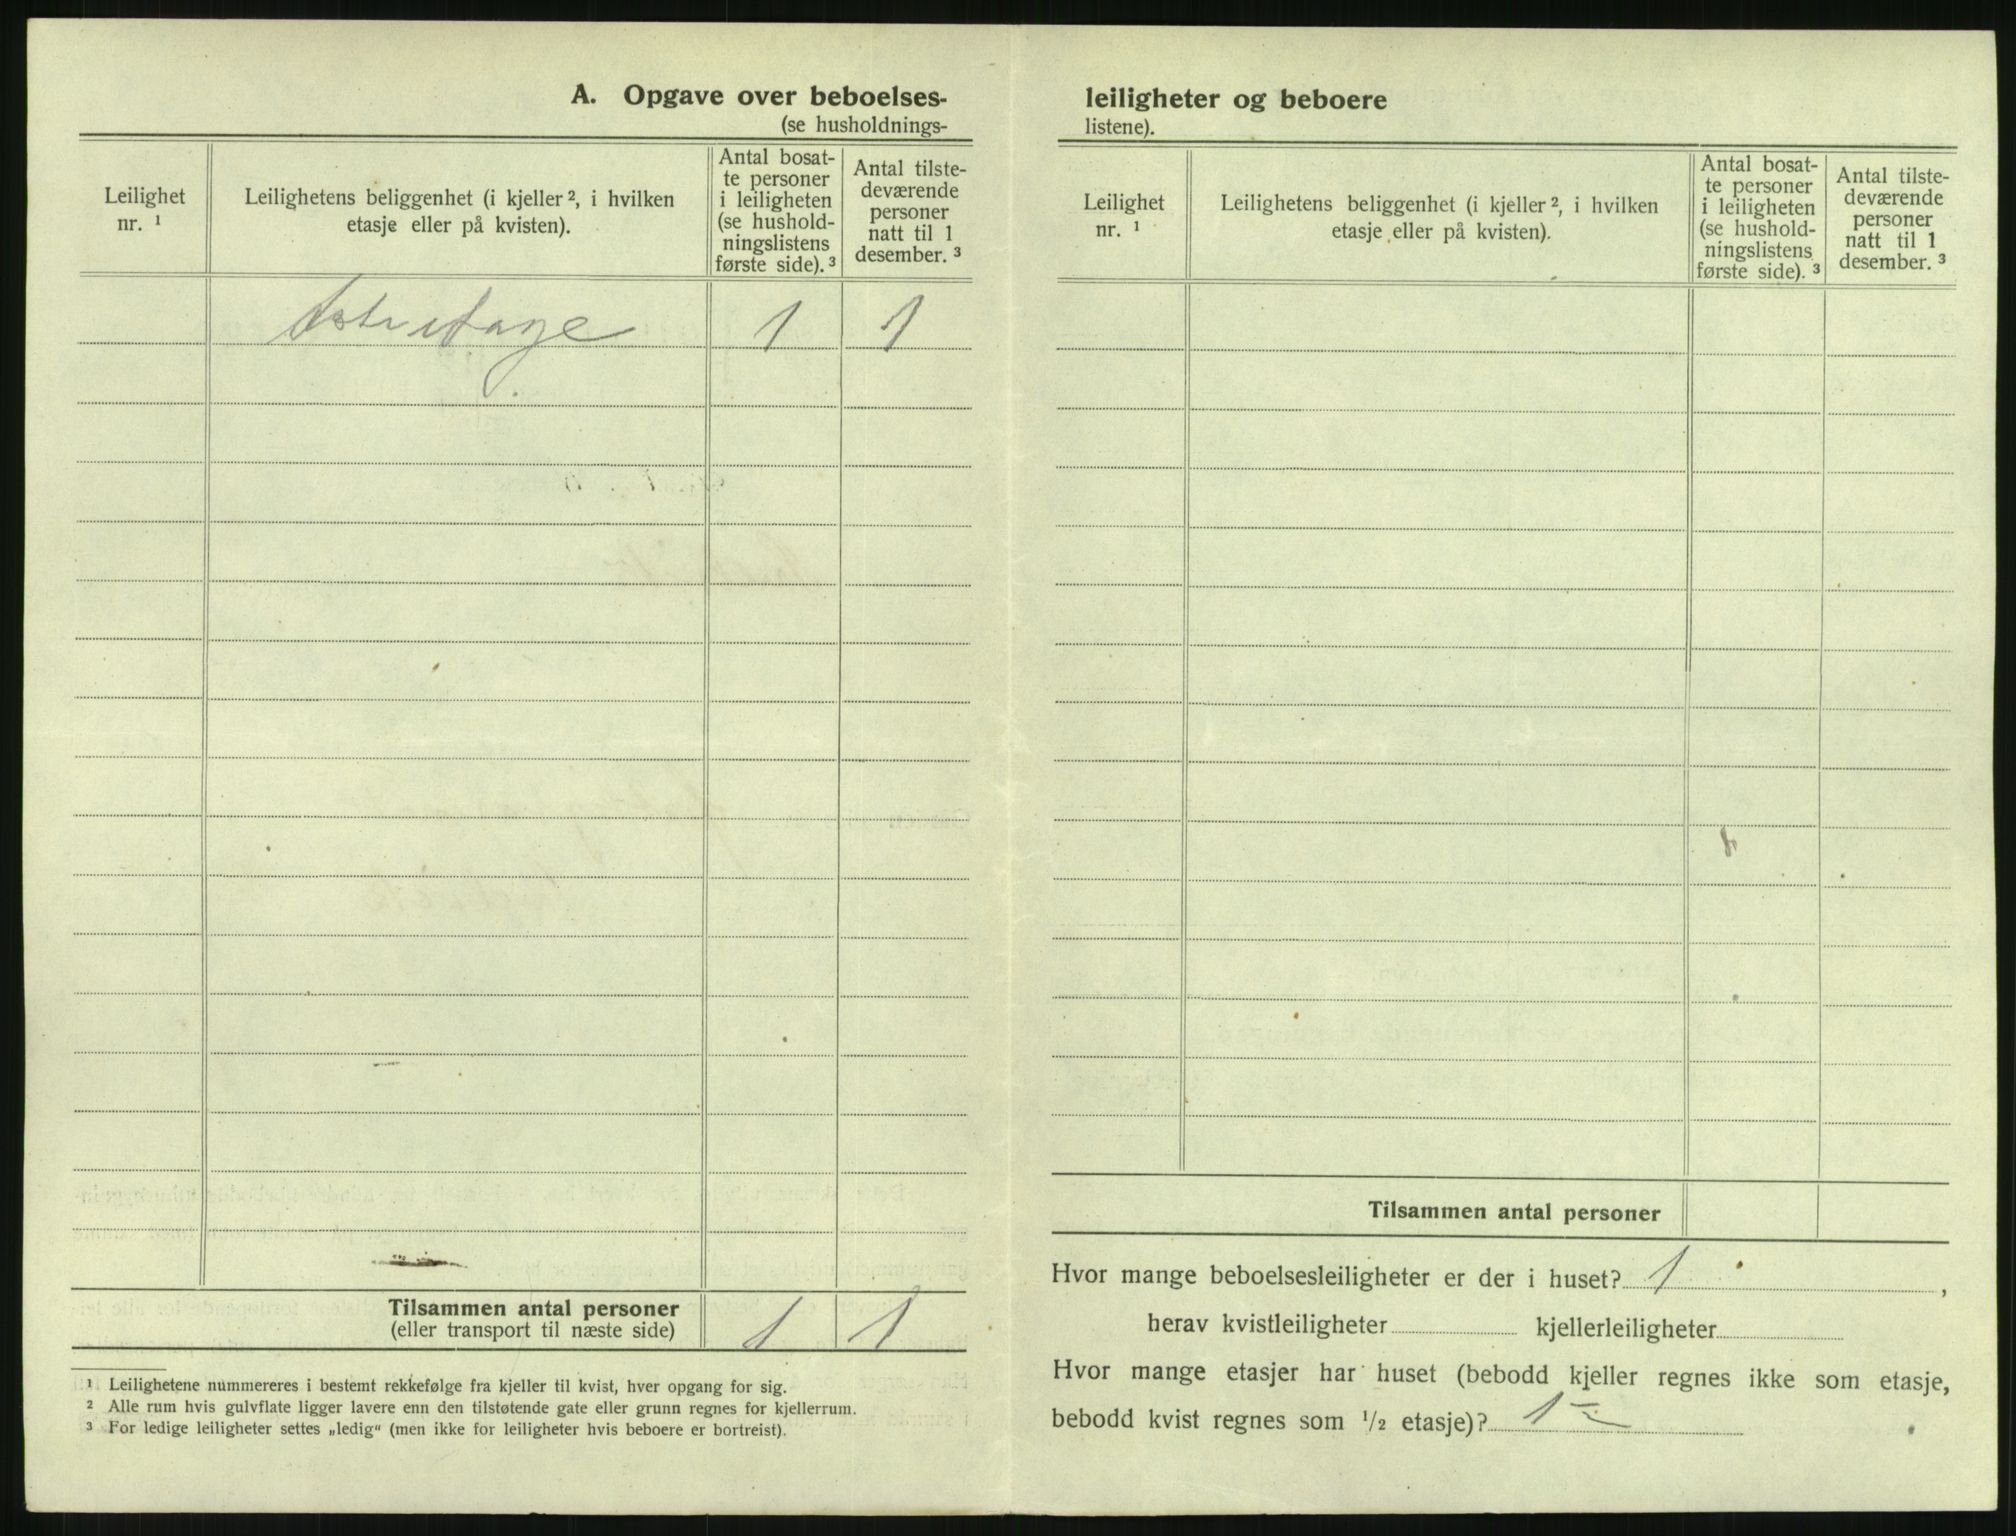 A. Opgave over beboelses-
(se husholdnings-
Leilighet nr. ¹
Leilighetens beliggenhet (i kjeller ², i hvilken
etasje eller på kvisten).
Antal bosat-
te personer
i leiligheten
(se hushold-
ningslistens
første side). ³
Antal tilste-
deværende
personer
natt til 1
desember. ³
1 1
Tilsammen antal personer
(eller transport til næste side)
1 1
¹ Leilighetene nummereres i bestemt rekkefølge fra kjeller til kvist, hver opgang for sig.
² Alle rum hvis gulvflate ligger lavere enn den tilstøtende gate eller grunn regnes for kjellerrum.
³ For ledige leiligheter settes „ledig“ (men ikke for leiligheter hvis beboere er bortreist).
leiligheter og beboere
listene).
Leilighet
nr. ¹
Leilighetens beliggenhet (i kjeller ², i hvilken
etasje eller på kvisten).
Antal bosat-
te personer
i leiligheten
(se hushold-
ningslistens
første side). ³
Antal tilste-
deværende
personer
natt til 1
desember. ³
Tilsammen antal personer
Hvor mange beboelsesleiligheter er der i huset? 1 ,
herav kvistleiligheter kjellerleiligheter
Hvor mange etasjer har huset (bebodd kjeller regnes ikke som etasje,
bebodd kvist regnes som ½ etasje)? 1